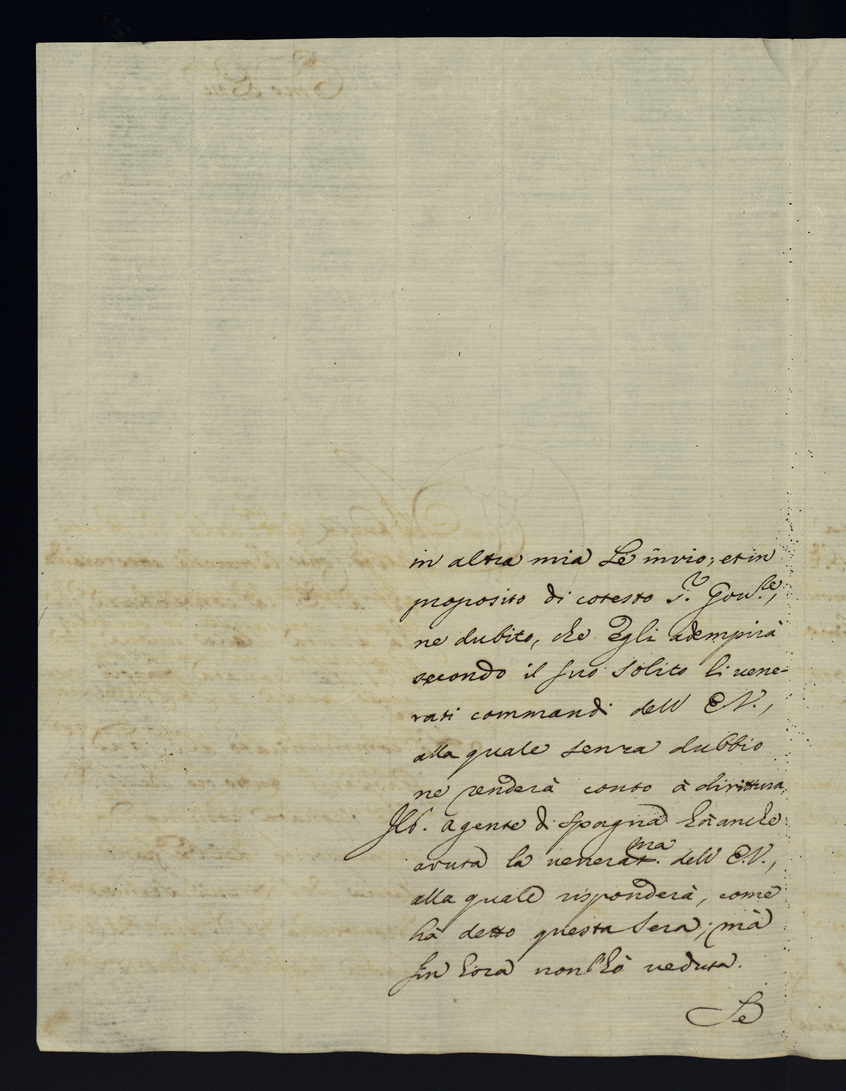 in altra mia Le invio; et in
proposito di cotesto S.r Gov.re,
ne dubito, che Egli adempirà
secondo il suo solito li vene-
rati commandi dell' E.V.,
alla quale senza dubbio
ne renderà conto à dirittura,
Agente di Spagna hà anche
avuta la venerat.ma dell' E.V.,
alla quale risponderà, come
hà detto questa sera; mà
fin hora non l'hò veduta.
Se